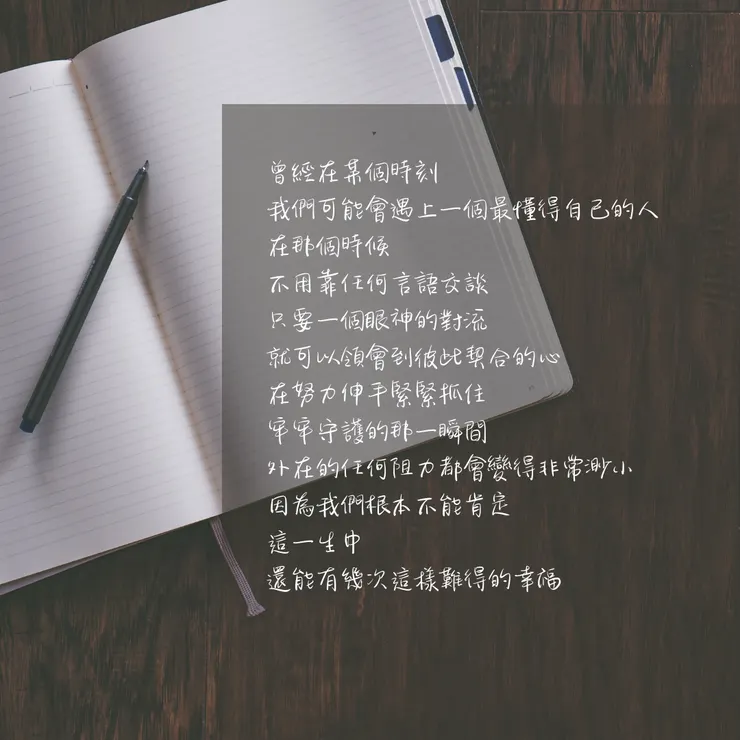 曾經在某個時刻
我們可能會遇上一個最懂得自己的人
在那個時候
不用靠任何言語交談
只要一個眼神的對流
就可以領會到彼此契合的心
在努力伸手緊緊抓住
牢牢守護的那一瞬間
外在的任何阻力都會變得非常渺小
因為我們根本不能肯定
這一生中
還能有幾次這樣難得的幸福